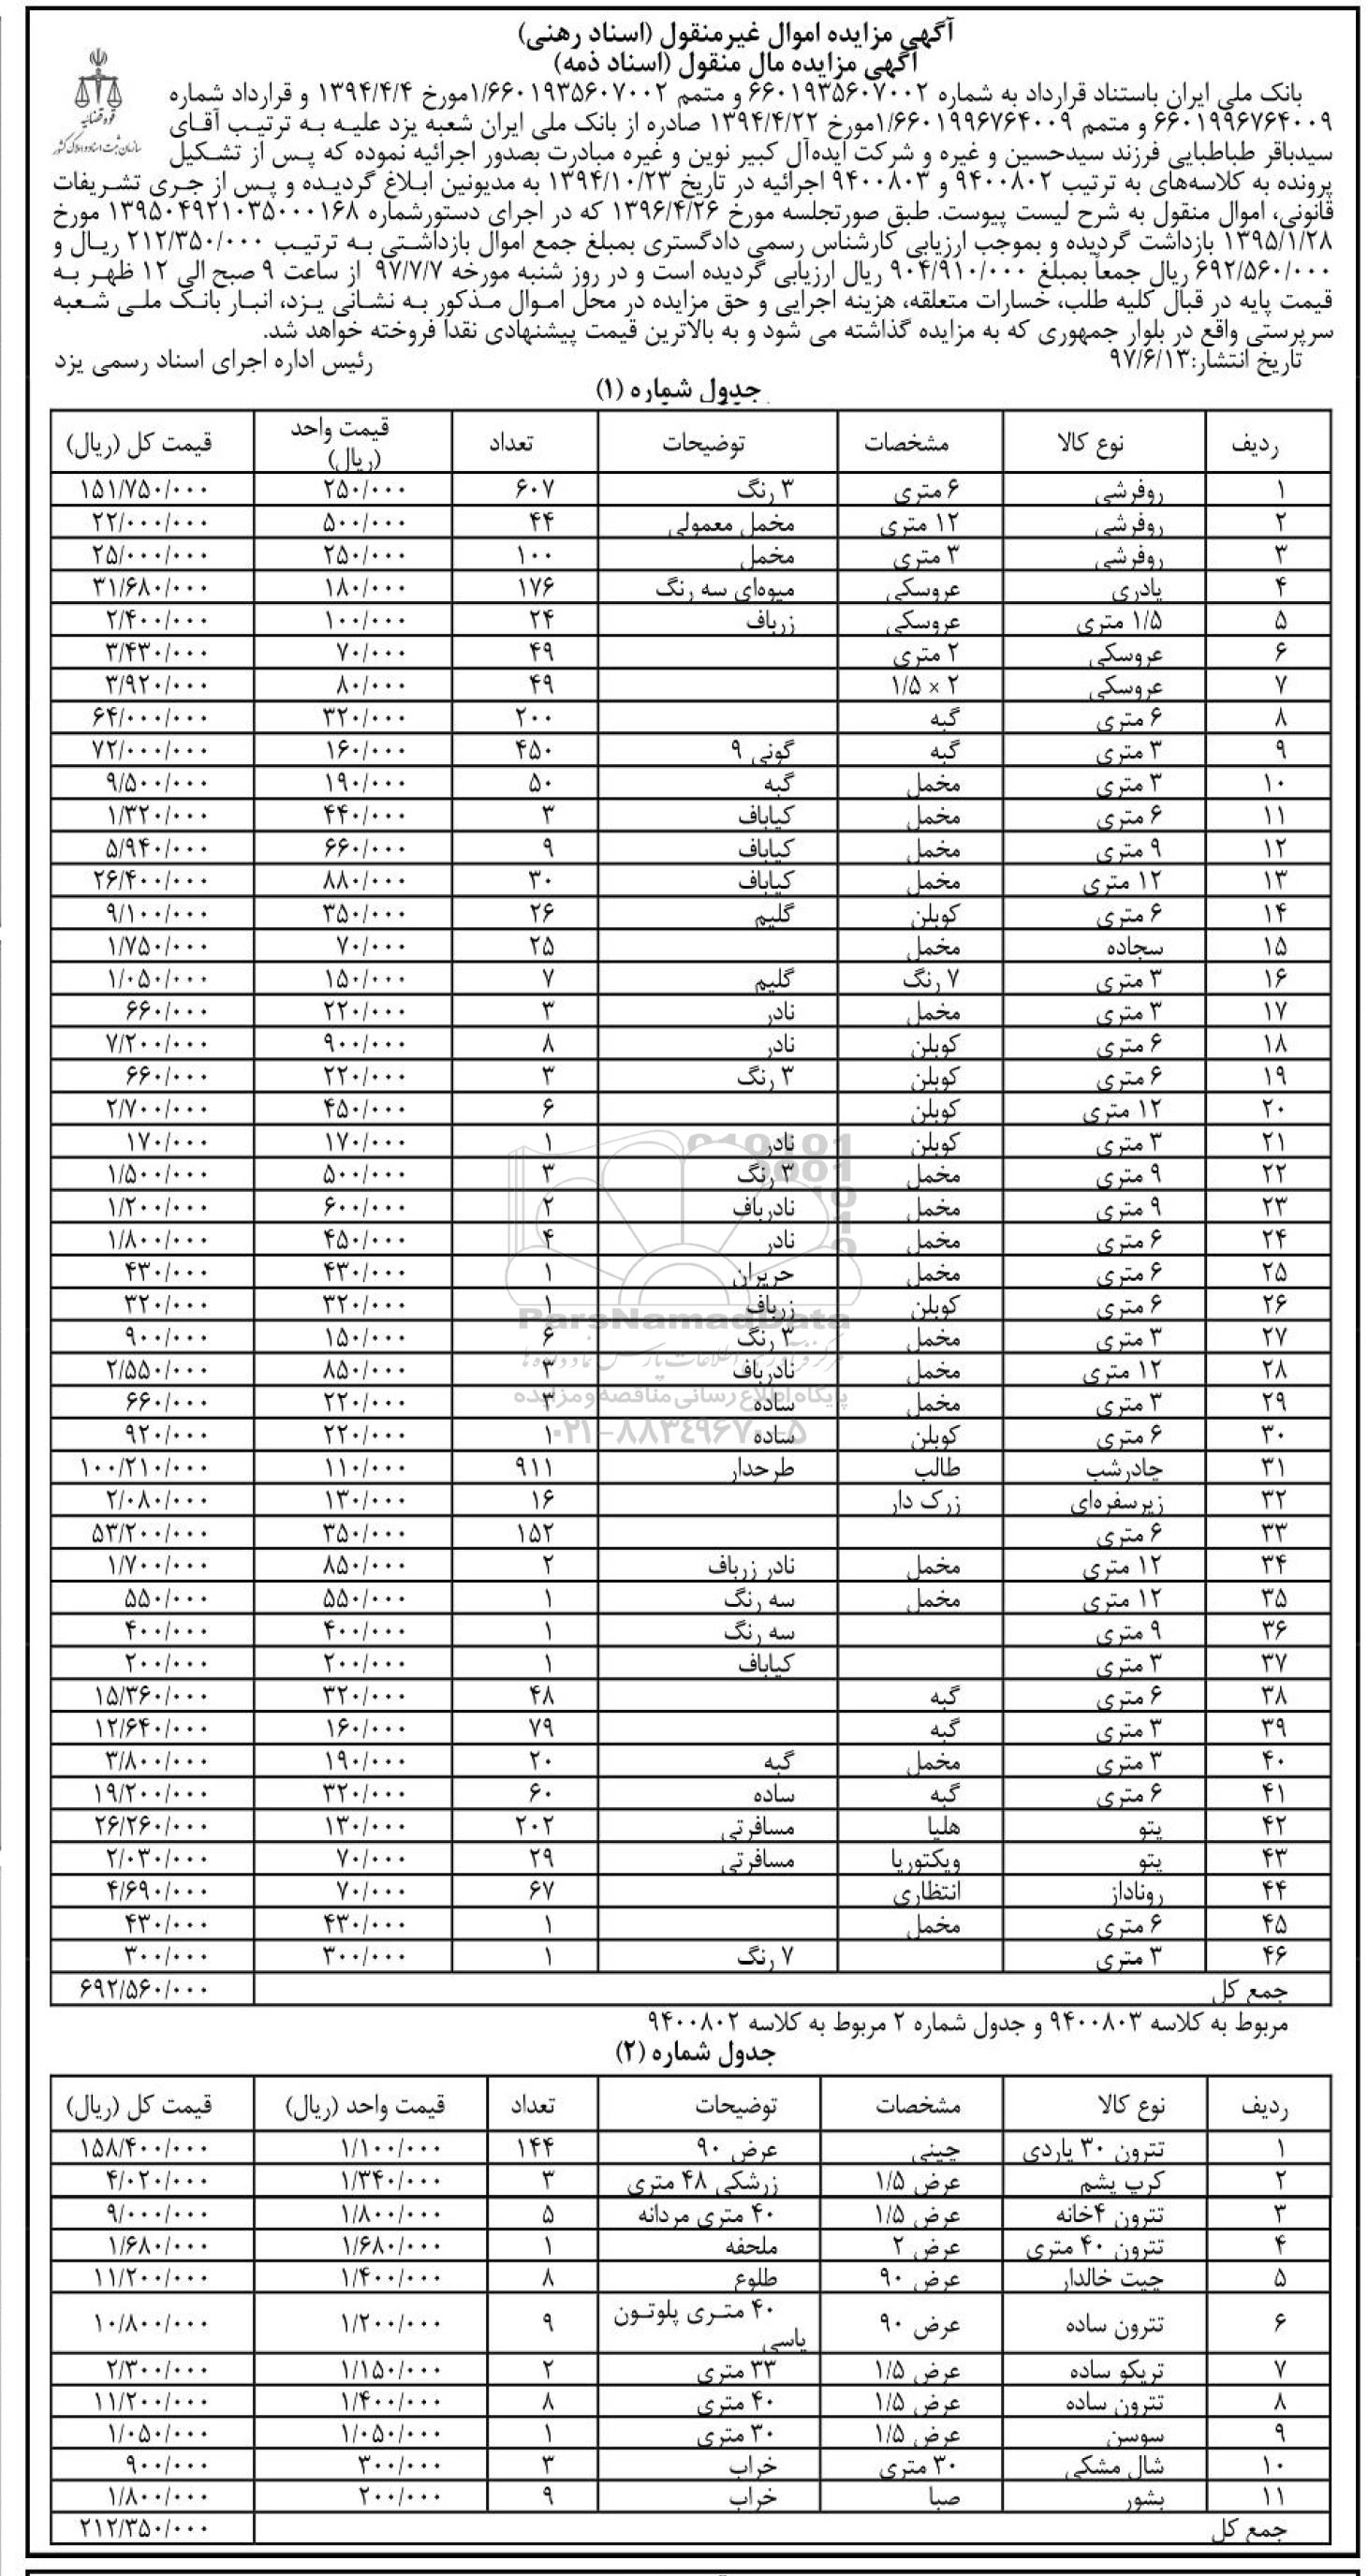 آگهی مزایده اموال غیرمنقول (اسناد رهنی)
آگهی مزایده مال منقول (اسناد ذمه)
قوه قضائیه
سازمان ثبت اسناد و املاک کشور
بانک ملی ایران باستناد قرارداد به شماره ۶۶۰۱۹۳۵۶۰۷۰۰۲ و متمم ۱/۶۶۰۱۹۳۵۶۰۷۰۰۲مورخ ۱۳۹۴/۴/۴ و قرارداد شماره
۶۶۰۱۹۹۶۷۶۴۰۰۹ و متمم ۱/۶۶۰۱۹۹۶۷۶۴۰۰۹مورخ ۱۳۹۴/۴/۲۲ صادره از بانک ملی ایران شعبه یزد علیه به ترتیب آقای
سیدباقر طباطبایی فرزند سیدحسین و غیره و شرکت ایده‌آل کبیر نوین و غیره مبادرت بصدور اجرائیه نموده که پس از تشکیل
پرونده به کلاسه‌های به ترتیب ۹۴۰۰۸۰۲ و ۹۴۰۰۸۰۳ اجرائیه در تاریخ ۱۳۹۴/۱۰/۲۳ به مدیونین ابلاغ گردیده و پس از جری تشریفات
قانونی، اموال منقول به شرح لیست پیوست. طبق صورتجلسه مورخ ۱۳۹۶/۴/۲۶ که در اجرای دستورشماره ۱۳۹۵۰۴۹۲۱۰۳۵۰۰۰۱۶۸ مورخ
۱۳۹۵/۱/۲۸ بازداشت گردیده و بموجب ارزیابی کارشناس رسمی دادگستری بمبلغ جمع اموال بازداشتی به ترتیب ۲۱۲/۳۵۰/۰۰۰ ریال و
۶۹۲/۵۶۰/۰۰۰ ریال جمعاً بمبلغ ۹۰۴/۹۱۰/۰۰۰ ریال ارزیابی گردیده است و در روز شنبه مورخه ۹۷/۷/۷ از ساعت ۹ صبح الی ۱۲ ظهر به
قیمت پایه در قبال کلیه طلب، خسارات متعلقه، هزینه اجرایی و حق مزایده در محل اموال مذکور به نشانی یزد، انبار بانک ملی شعبه
سرپرستی واقع در بلوار جمهوری که به مزایده گذاشته می شود و به بالاترین قیمت پیشنهادی نقدا فروخته خواهد شد.
تاریخ انتشار:۹۷/۶/۱۳ رئیس اداره اجرای اسناد رسمی یزد
جدول شماره (۱)
ردیف نوع کالا مشخصات توضیحات تعداد قیمت واحد (ریال) قیمت کل (ریال)
۱ روفرشی ۶ متری ۳ رنگ ۶۰۷ ۲۵۰/۰۰۰ ۱۵۱/۷۵۰/۰۰۰
۲ روفرشی ۱۲ متری مخمل معمولی ۴۴ ۵۰۰/۰۰۰ ۲۲/۰۰۰/۰۰۰
۳ روفرشی ۳ متری مخمل ۱۰۰ ۲۵۰/۰۰۰ ۲۵/۰۰۰/۰۰۰
۴ پادری عروسکی میوه‌ای سه رنگ ۱۷۶ ۱۸۰/۰۰۰ ۳۱/۶۸۰/۰۰۰
۵ ۱/۵ متری عروسکی زرباف ۲۴ ۱۰۰/۰۰۰ ۲/۴۰۰/۰۰۰
۶ عروسکی ۲ متری ۴۹ ۷۰/۰۰۰ ۳/۴۳۰/۰۰۰
۷ عروسکی ۲ × ۱/۵ ۴۹ ۸۰/۰۰۰ ۳/۹۲۰/۰۰۰
۸ ۶ متری گبه ۲۰۰ ۳۲۰/۰۰۰ ۶۴/۰۰۰/۰۰۰
۹ ۳ متری گبه گونی ۹ ۴۵۰ ۱۶۰/۰۰۰ ۷۲/۰۰۰/۰۰۰
۱۰ ۳ متری مخمل گبه ۵۰ ۱۹۰/۰۰۰ ۹/۵۰۰/۰۰۰
۱۱ ۶ متری مخمل کیاباف ۳ ۴۴۰/۰۰۰ ۱/۳۲۰/۰۰۰
۱۲ ۹ متری مخمل کیاباف ۹ ۶۶۰/۰۰۰ ۵/۹۴۰/۰۰۰
۱۳ ۱۲ متری مخمل کیاباف ۳۰ ۸۸۰/۰۰۰ ۲۶/۴۰۰/۰۰۰
۱۴ ۶ متری کوبلن گلیم ۲۶ ۳۵۰/۰۰۰ ۹/۱۰۰/۰۰۰
۱۵ سجاده مخمل ۲۵ ۷۰/۰۰۰ ۱/۷۵۰/۰۰۰
۱۶ ۳ متری ۷ رنگ گلیم ۷ ۱۵۰/۰۰۰ ۱/۰۵۰/۰۰۰
۱۷ ۳ متری مخمل نادر ۳ ۲۲۰/۰۰۰ ۶۶۰/۰۰۰
۱۸ ۶ متری کوبلن نادر ۸ ۹۰۰/۰۰۰ ۷/۲۰۰/۰۰۰
۱۹ ۶ متری کوبلن ۳ رنگ ۳ ۲۲۰/۰۰۰ ۶۶۰/۰۰۰
۲۰ ۱۲ متری کوبلن ۶ ۴۵۰/۰۰۰ ۲/۷۰۰/۰۰۰
۲۱ ۳ متری کوبلن نادر ۱ ۱۷۰/۰۰۰ ۱۷۰/۰۰۰
۲۲ ۹ متری مخمل ۳ رنگ ۳ ۵۰۰/۰۰۰ ۱/۵۰۰/۰۰۰
۲۳ ۹ متری مخمل نادرباف ۲ ۶۰۰/۰۰۰ ۱/۲۰۰/۰۰۰
۲۴ ۶ متری مخمل نادر ۴ ۴۵۰/۰۰۰ ۱/۸۰۰/۰۰۰
۲۵ ۶ متری مخمل حریران ۱ ۴۳۰/۰۰۰ ۴۳۰/۰۰۰
۲۶ ۶ متری کوبلن زرباف ۱ ۳۲۰/۰۰۰ ۳۲۰/۰۰۰
ParsNamadData
۲۷ ۳ متری مخمل ۳ رنگ ۶ ۱۵۰/۰۰۰ ۹۰۰/۰۰۰
مرکز فرآوری اطلاعات پارس نماد داده ها
۲۸ ۱۲ متری مخمل نادرباف ۳ ۸۵۰/۰۰۰ ۲/۵۵۰/۰۰۰
پایگاه اطلاع رسانی مناقصه و مزایده
۲۹ ۳ متری مخمل ساده ۳ ۲۲۰/۰۰۰ ۶۶۰/۰۰۰
۰۲۱-۸۸۳۴۹۶۷۰-۵
۳۰ ۶ متری کوبلن ساده ۱ ۲۲۰/۰۰۰ ۹۲۰/۰۰۰
۳۱ چادرشب طالب طرحدار ۹۱۱ ۱۱۰/۰۰۰ ۱۰۰/۲۱۰/۰۰۰
۳۲ زیرسفره‌ای زرک دار ۱۶ ۱۳۰/۰۰۰ ۲/۰۸۰/۰۰۰
۳۳ ۶ متری ۱۵۲ ۳۵۰/۰۰۰ ۵۳/۲۰۰/۰۰۰
۳۴ ۱۲ متری مخمل نادر زرباف ۲ ۸۵۰/۰۰۰ ۱/۷۰۰/۰۰۰
۳۵ ۱۲ متری مخمل سه رنگ ۱ ۵۵۰/۰۰۰ ۵۵۰/۰۰۰
۳۶ ۹ متری سه رنگ ۱ ۴۰۰/۰۰۰ ۴۰۰/۰۰۰
۳۷ ۳ متری کیاباف ۱ ۲۰۰/۰۰۰ ۲۰۰/۰۰۰
۳۸ ۶ متری گبه ۴۸ ۳۲۰/۰۰۰ ۱۵/۳۶۰/۰۰۰
۳۹ ۳ متری گبه ۷۹ ۱۶۰/۰۰۰ ۱۲/۶۴۰/۰۰۰
۴۰ ۳ متری مخمل گبه ۲۰ ۱۹۰/۰۰۰ ۳/۸۰۰/۰۰۰
۴۱ ۶ متری گبه ساده ۶۰ ۳۲۰/۰۰۰ ۱۹/۲۰۰/۰۰۰
۴۲ پتو هلیا مسافرتی ۲۰۲ ۱۳۰/۰۰۰ ۲۶/۲۶۰/۰۰۰
۴۳ پتو ویکتوریا مسافرتی ۲۹ ۷۰/۰۰۰ ۲/۰۳۰/۰۰۰
۴۴ رونداز انتظاری ۶۷ ۷۰/۰۰۰ ۴/۶۹۰/۰۰۰
۴۵ ۶ متری مخمل ۱ ۴۳۰/۰۰۰ ۴۳۰/۰۰۰
۴۶ ۳ متری ۷ رنگ ۱ ۳۰۰/۰۰۰ ۳۰۰/۰۰۰
جمع کل ۶۹۲/۵۶۰/۰۰۰
مربوط به کلاسه ۹۴۰۰۸۰۳ و جدول شماره ۲ مربوط به کلاسه ۹۴۰۰۸۰۲
جدول شماره (۲)
ردیف نوع کالا مشخصات توضیحات تعداد قیمت واحد (ریال) قیمت کل (ریال)
۱ تترون ۳۰ یاردی چینی عرض ۹۰ ۱۴۴ ۱/۱۰۰/۰۰۰ ۱۵۸/۴۰۰/۰۰۰
۲ کرپ پشم عرض ۱/۵ زرشکی ۴۸ متری ۳ ۱/۳۴۰/۰۰۰ ۴/۰۲۰/۰۰۰
۳ تترون ۴خانه عرض ۱/۵ ۴۰ متری مردانه ۵ ۱/۸۰۰/۰۰۰ ۹/۰۰۰/۰۰۰
۴ تترون ۴۰ متری عرض ۲ ملحفه ۱ ۱/۶۸۰/۰۰۰ ۱/۶۸۰/۰۰۰
۵ چیت خالدار عرض ۹۰ طلوع ۸ ۱/۴۰۰/۰۰۰ ۱۱/۲۰۰/۰۰۰
۶ تترون ساده عرض ۹۰ ۴۰ متری پلوتون یاسی ۹ ۱/۲۰۰/۰۰۰ ۱۰/۸۰۰/۰۰۰
۷ تریکو ساده عرض ۱/۵ ۳۳ متری ۲ ۱/۱۵۰/۰۰۰ ۲/۳۰۰/۰۰۰
۸ تترون ساده عرض ۱/۵ ۴۰ متری ۸ ۱/۴۰۰/۰۰۰ ۱۱/۲۰۰/۰۰۰
۹ سوسن عرض ۱/۵ ۳۰ متری ۱ ۱/۰۵۰/۰۰۰ ۱/۰۵۰/۰۰۰
۱۰ شال مشکی ۳۰ متری خراب ۳ ۳۰۰/۰۰۰ ۹۰۰/۰۰۰
۱۱ بشور صبا خراب ۹ ۲۰۰/۰۰۰ ۱/۸۰۰/۰۰۰
جمع کل ۲۱۲/۳۵۰/۰۰۰